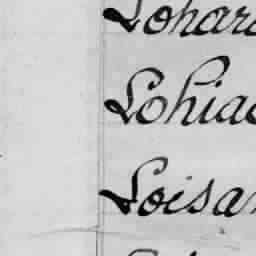 Lohar
Lohiac
Loisa